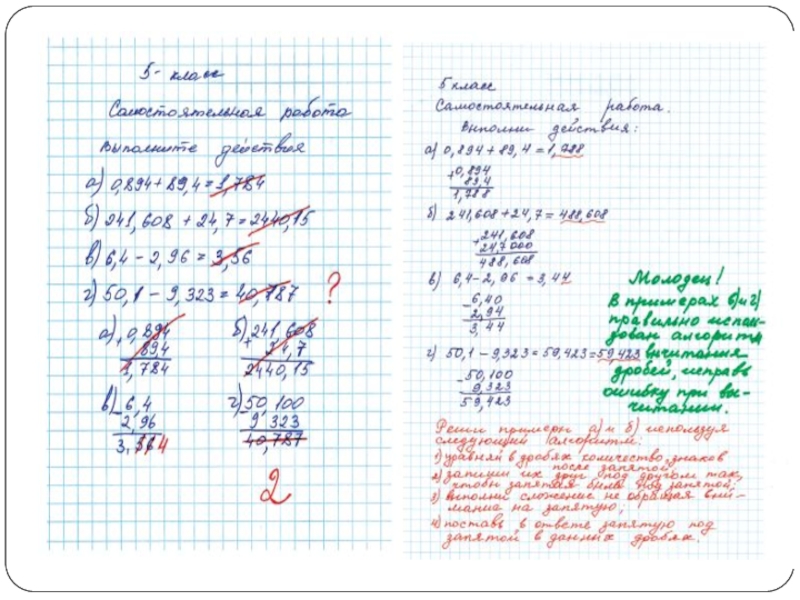 5- класс
Самостоятельная работа
Выполните действия
а) 0,894 + 89,4 = 1,784
б) 241,608 + 24,7 = 2440,15
в) 6,4 - 2,96 = 3,56
г) 50,1 - 9,323 = 40,787 ?
а) + 0,894
894
1,784
б) + 241,608
24,7
2440,15
в) - 6,4
2,96
г) - 50,100
9 323
40,787
2
5 класс
Самостоятельная работа.
Выполни действия:
а) 0,894 + 89,4 = 1,788
+ 0,894
89,4
1,788
б) 241,608 + 24,7 = 488,608
+ 241,608
247000
488,608
в) 6,4 - 2,96 = 3,44
- 6,40
2,94
3,44
г) 50,1 - 9,323 = 59,423 = 59,423
- 50,100
9,323
59,423
Молодец!
В примерах в) и г)
правильно исполь-
зован алгоритм
вычитания
дробей, исправь
ошибку при вы-
читании.
Реши примеры а) и б) используя
следующий алгоритм:
1) уравняй в дробях количество знаков
после запятой
2) запиши их друг под другом так,
чтобы запятая была под запятой;
3) выполни сложение не обращая вни-
мание на запятую;
4) поставь в ответе запятую под
запятой в данных дробях.